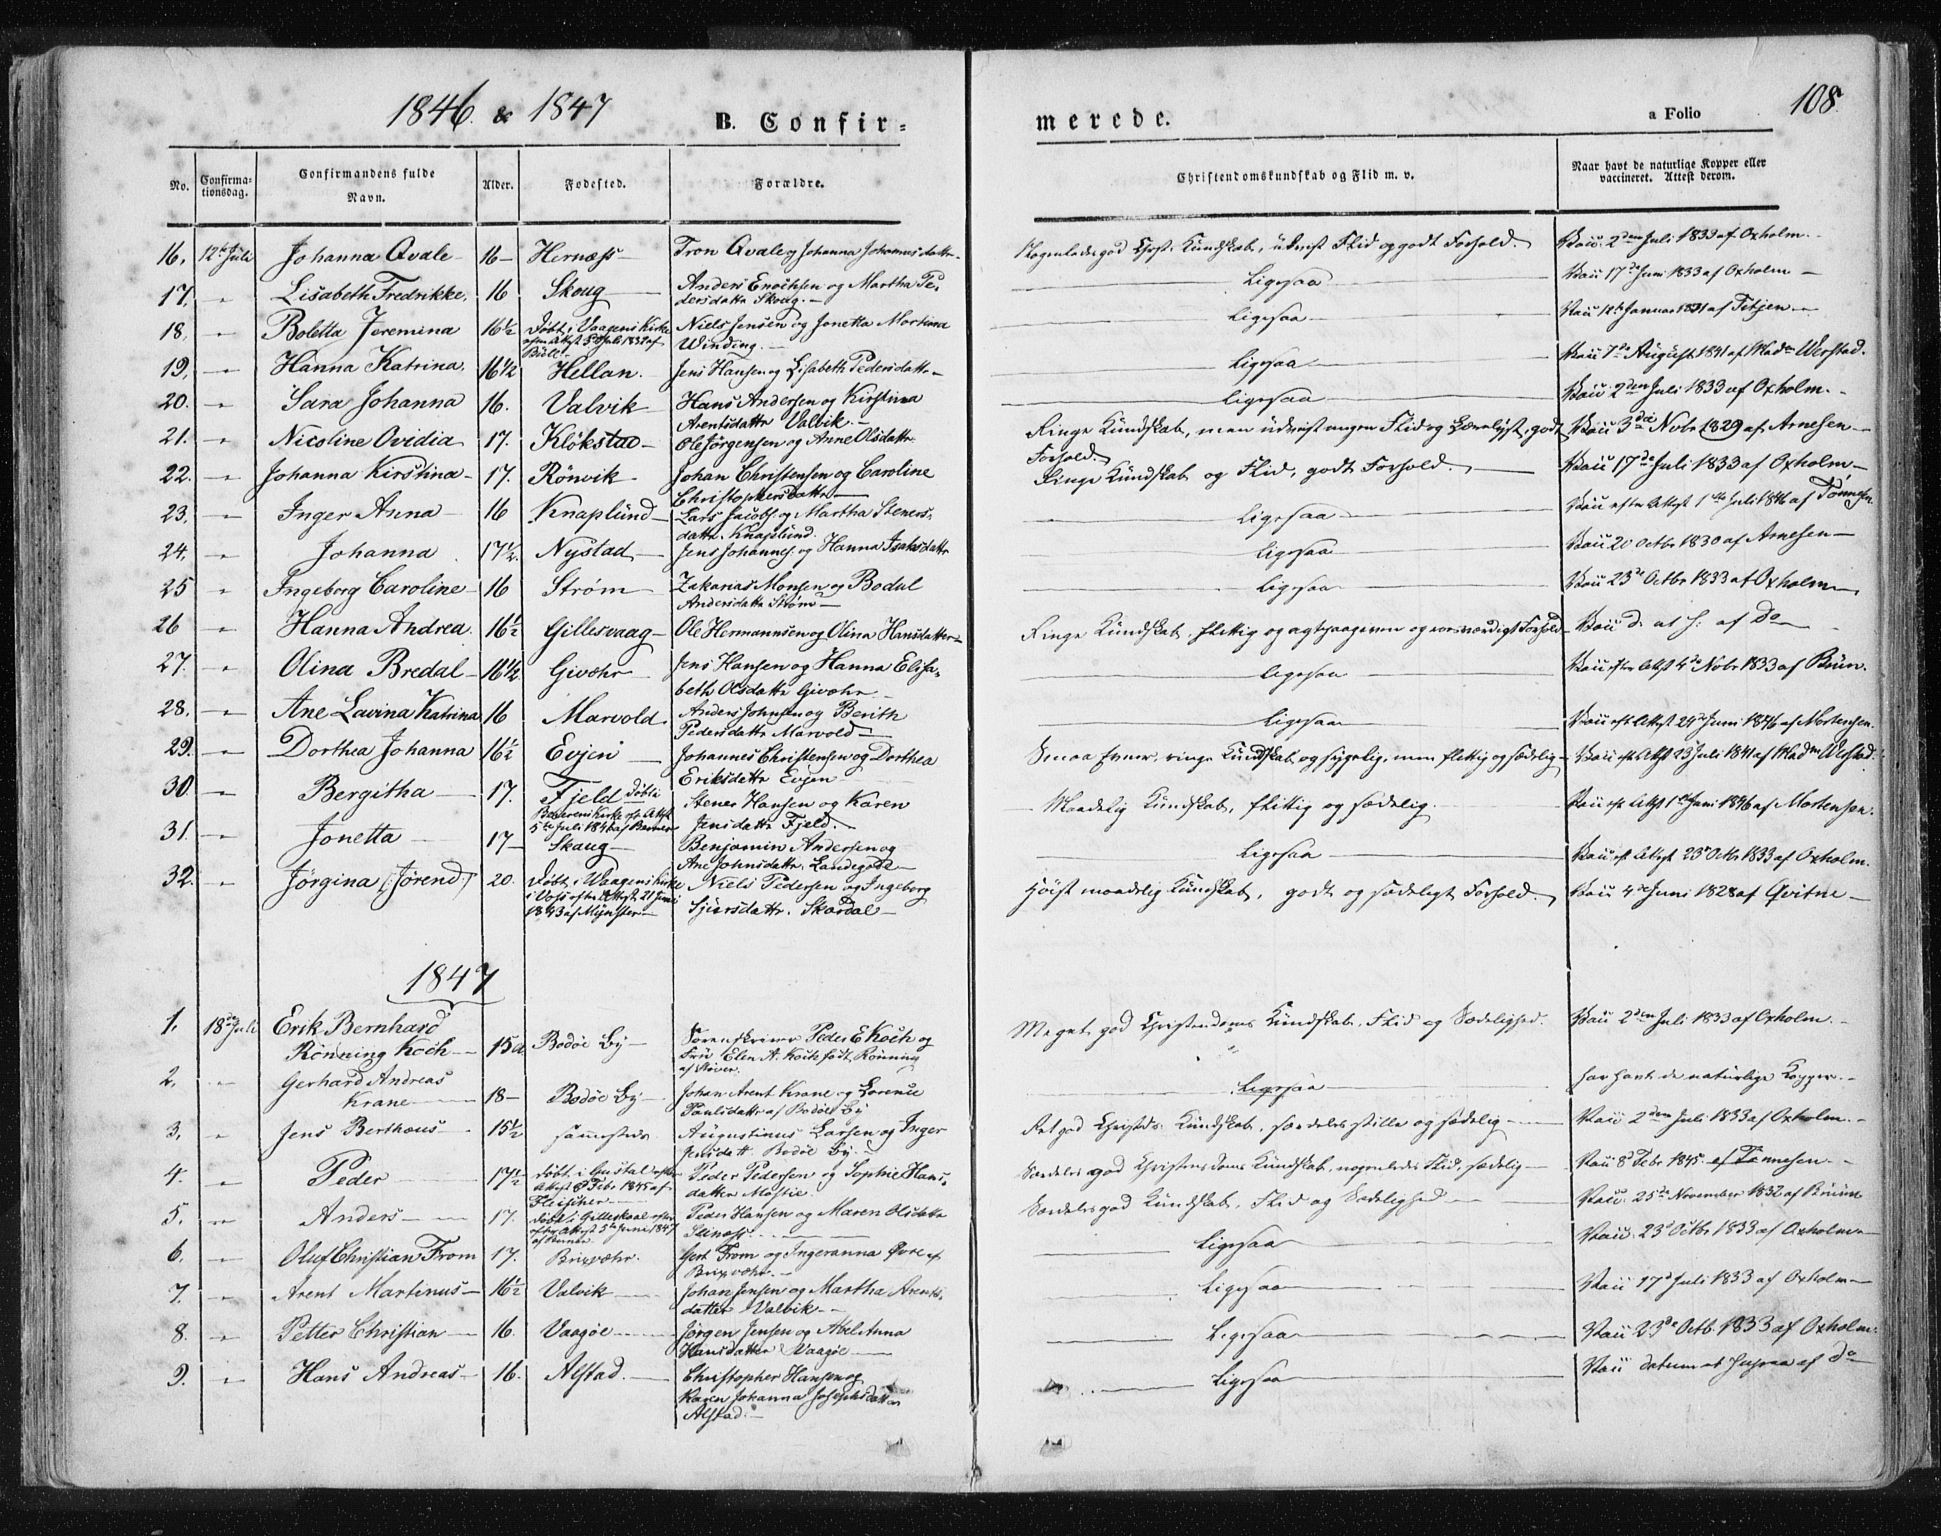 1846. & 1847
B. Confir=
merede.
a Folio
108
No.
Confirma-
tionsdag.
Confirmandens fulde
Navn.
Alder.
Fodested.
Forældre.
Christendomskundskab og Flid m. v.
Naar havt de naturlige Kopper eller
vaccineret. Attest derom.
16. 12te Juli Johanna Qvale 16 Hernæss Tron Qvale og Johanna Johannesdatter god Christ. Kundskab, udviist Flid og godt Forhold Vacc. 2den Juli 1833 af Oxholm.
17. " Lisabeth Fredrikke. 16 Skoug Anders Enochsen og Martha Pe-
dersdatter Skoug. Ligesaa Vacc 17de Juni 1833 af Oxholm
18. " Boletta Jeremina 16½ Døbt i Vaagens Kirke
Niels Jensen og Jonetta Martina
Winding. Ligesaa Vacc 12te Januar 1831 af Titjen
19. " Hanna Katrina. 16½ Hellan. Jens Hansen og Lisabeth Pedersdatter Ligesaa Vacc 7de August 1841 af Madm Werstad.
20. " Sara Johanna 16. Valvik Hans Andersen og Kirstina
Arentsdatter Valvik. Ligesaa Vacc 2den Juli 1833 af Oxholm.
21. " Nicoline Ovidia 17. Klökstad Ole Jørgensen og Anne Olsdatter Ringe Kundskab, men udviist megen Flid og Lærelyst, godt
Forhold. Vacc 3die Novbr 1829 af Arnesen
22. " Johanna Kirstina 17. Rönvik Johan Christensen og Caroline
Christophersdatter Ringe Kundskab og Flid, godt Forhold. Vacc 17de Juli 1833 af Oxholm
23. " Inger Anna 16 Knaplund Lars Jacobs. og Martha Steners-
datter Knaplund. Ligesaa Vacc efter Attest 1ste Juli 1846 af Tönnesen
24. " Johanna 17½ Nystad Jens Johannes. og Hanna Isaksdatter Ligesaa Vacc 20 Octbr 1830 af Arnesen
25 " Ingeborg Caroline 16 Strøm Zakarias Monsen og Bodel
Andersdatter Strøm Ligesaa Vacc 23de Octbr 1833 af Oxholm
26 " Hanna Andrea. 16½ Gillesvaag Ole Hermannsen og Olina Hansdatter Ringe Kundskab, flittig og agtpaagiven og roesværdigt Forhold Vacc d. at s: af Do
27. " Olina Bredal 16½ Givøhr Jens Hansen og Hanna Elisa-
beth Olsdatter Givøhr ligesaa Vacc efter Attst 4de Novbr 1833 af Brun.
28. " Ane Lavina Katrina 16 Marvold. Anders Johnsen og Berith
Pedersdatter Marvold Ligesaa Vacc eft Attest 29de Juni 1846 af Mortensen.
29. " Dorthea Johanna 16½ Evjen Johannes Christensen og Dorthea
Eriksdatter Evjen Smaa Evner, ringe Kundskab og sygelig, men flittig og sædelig Vacc eft Attst 23 Juli 1841 af Madm Werstad.
30. " Bergitha 17. Fjeld Døbt i
5te Juli 1846 af
Stener Hansen og Karen
Jensdatter Fjeld. Maadelig Kundskab, flittig og sædelig. Vacc eft Attst 1ste Juni 1846 af Mortensen.
31. " Jonetta 17 Skaug Benjamin Andersen og
Ane Johnsdatter Landegode Ligesaa Vacc eft Attest 23de Octbr 1833 af Oxholm.
32. " Jörgina (Jörend) 20. Døbt i Waagens Kirke
i Voss efter Attest 21 Juni
1843 af Mynster Niels Pedersen og Ingeborg
Sjursdatter Skardal Høist maadelig Kundskab, godt og sædeligt Forhold. Vacc 4de Juni 1828 af Qvitne
1847
1. 18de Juli Erik Bernhard
Rönning Koch 15 Bodøe By Sorenskriver Peder E Koch og
Frue Elen A. Koch født Rönning
Meget god Christendoms Kundskab, Flid og Sædelighed. Vacc 2den Juli 1833 af Oxholm.
2. " Gerhard Andreas
Krane 18 Bodøe By Johan Arent Krane og Lorence
Paulsdatter af Bodöe By Ligesaa har havt de naturlige Kopper.
3. " Jens Berthæus 15½ sammesteds Augustinus Larsen og Inger
Jensdatt. Bodöe By. Ret god Christds Kundskab, særdeles stille og sædelig Vacc 2den Juli 1833 af Oxholm.
4. " Peder 17½ Døbt i
Attest 8 Febr 1845 af
Fleischer Peder Pedersen og Sophie Hans-
datter Særdeles god Christendoms Kundskab, nogenledes Flid, sædelig Vacc 8de Febr 1845. af Tönnesen.
5. " Anders 17. Døbt i Gilleskaal
Attest 5te Juni 1847
Peder Hansen og Maren Olsdatter
Særdeles god Kundskab, Flid og Sædelighed Vacc. 25de November 1832 af Bruun
6. " Oluf Christian From 17. Brixvæhr. Gert From og Ingeranna
Brixvæhr. Ligesaa Vacc. 23de Octbr 1833 af Oxholm
7. " Arent Martinus 16½ Valvik Johan Jensen og Martha Arents-
datter Valvik Ligesaa Vacc 17de Juli 1833 af Oxholm
8. " Petter Christian 16. Vaagöe Jørgen Jensen og Abel Anna
Hansdatter Vaagöe Ligesaa Vacc 23de Octb. 1833 af Oxholm.
9. " Hans Andreas 16. Alstad. Christopher Hansen og
Karen Johanna Josephsdatter
Alstad. Ligesaa Vacc datum at supra af do